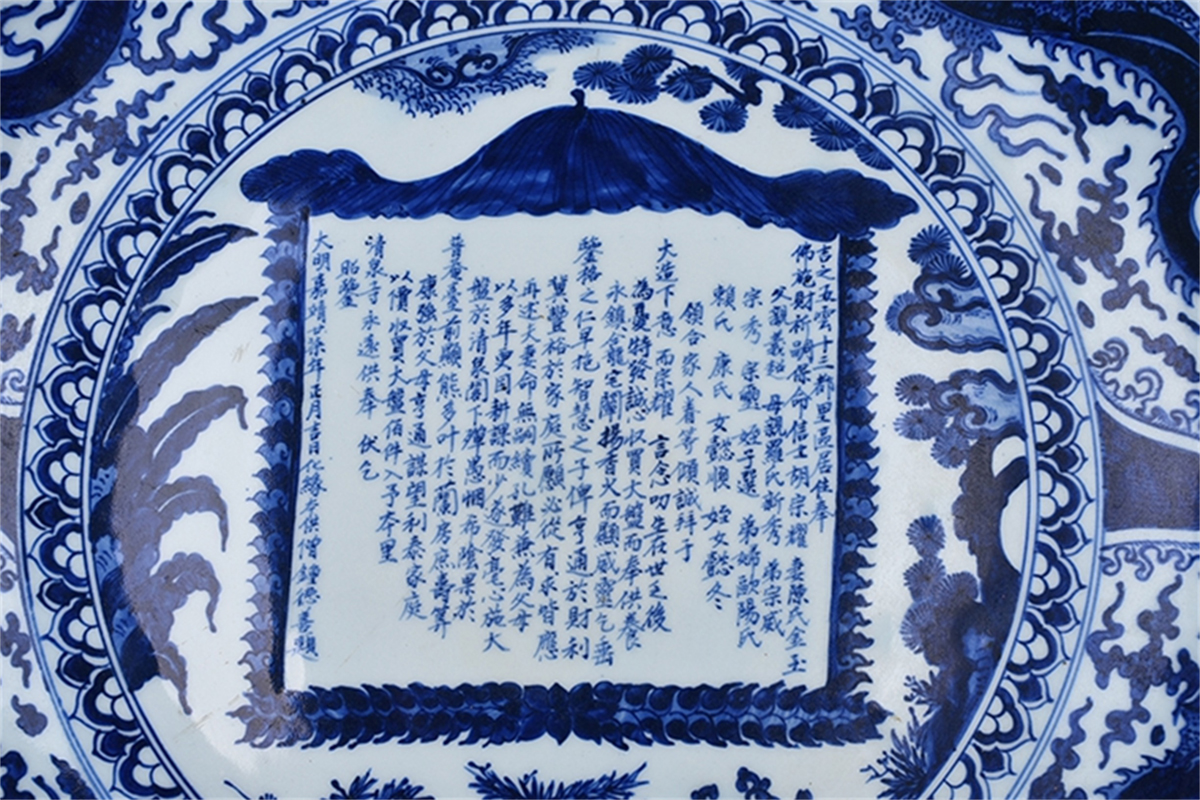 吉之安雲十三都里區居住奉
佛施財祈嗣保命信士胡宗耀 妻陳氏金玉
父親義超 母親羅氏新秀 弟宗威
宗秀 宗 姪子選 弟婦歐陽氏
賴氏 康氏 女懿順 姪女懿冬
領合家人眷等傾誠拜于
大造下意 而宗耀 言念叨生在世乏後
為憂特發誠心收買大盤而奉供養
永鎮龕宅闡揚香火而顯威靈乞垂
鑒格之仁早抱智慧之子俾亨通於財利
冀豐裕於家庭所願必從有求皆應
再述夫妻命無嗣續乱難兼為父母
以多年更因耕課而少遂發毫心施大
盤於清泉閣下殫愚悃希陰果於
普菴臺前顯能多叶於蘭房庶壽算
康強於父母亨通謀望利泰家庭
以價收買大盤佰件入予本里
清泉寺永遠供奉 伏乞
昭鑒
大明嘉靖廿柒年正月吉日化緣本供僧鐘德善題